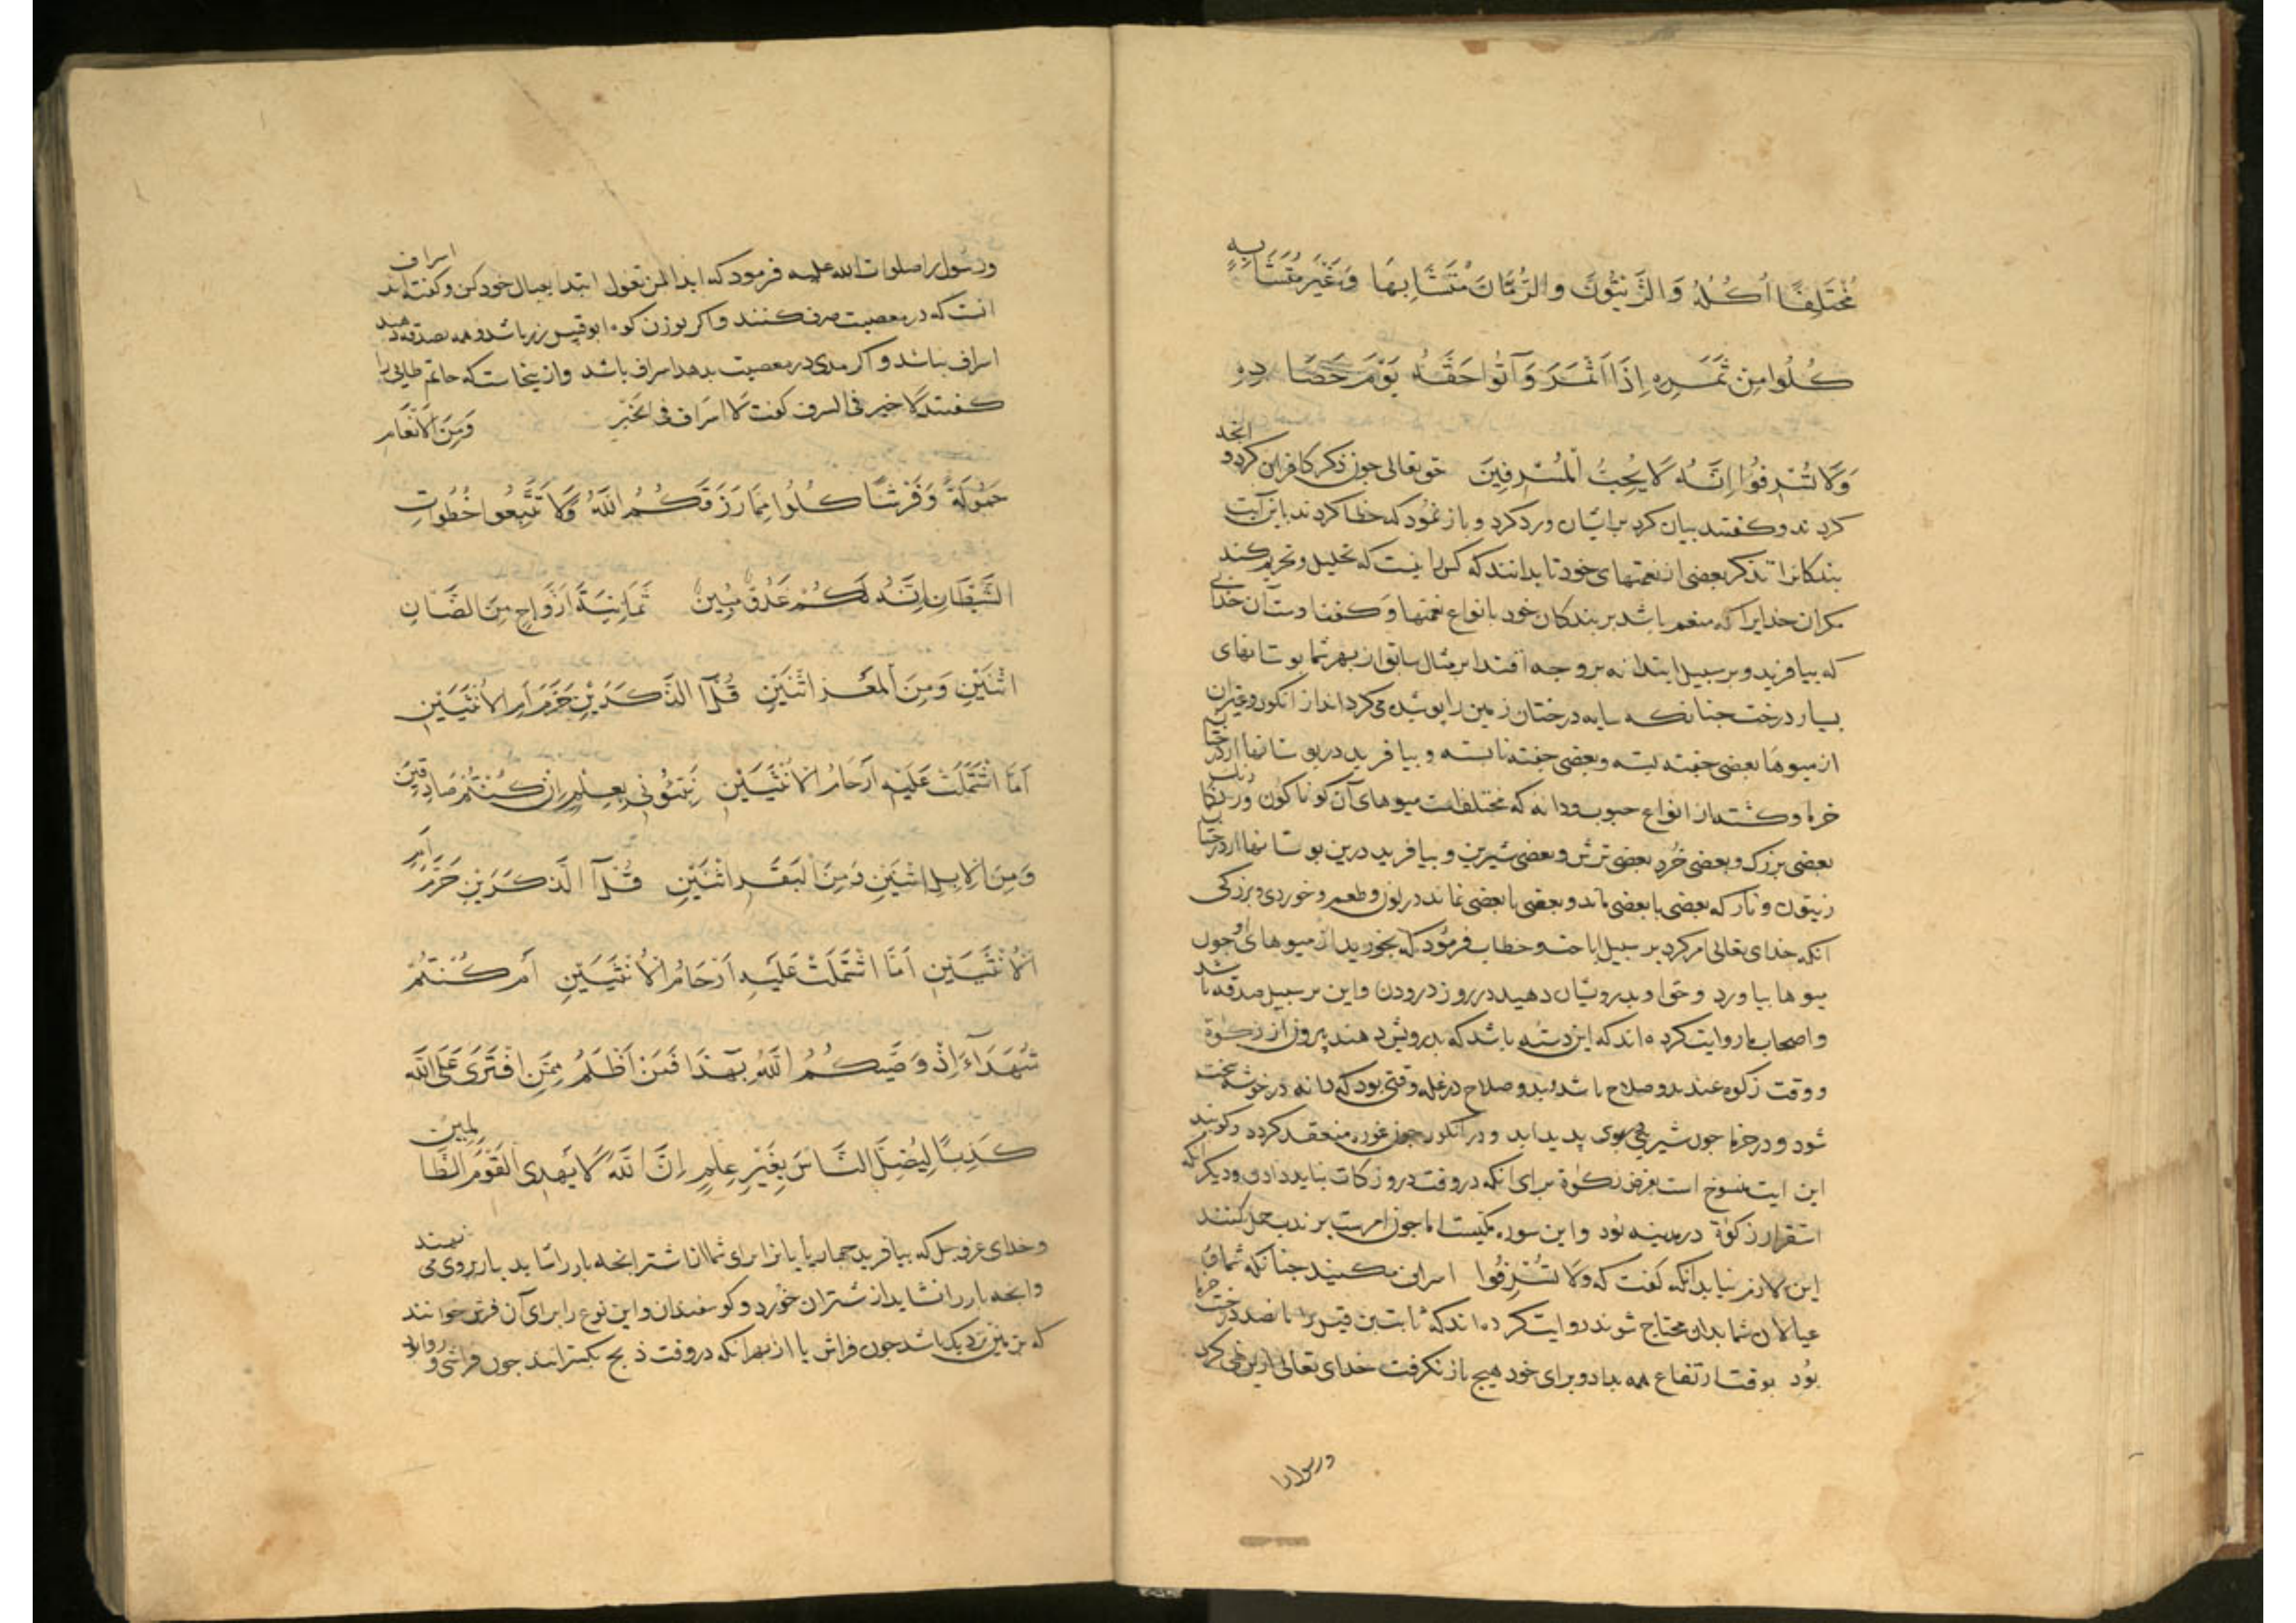 مُخْتَلِفًا اُكُلُهُ وَالزَّيْتُونَ وَالرُّمَّانَ مُتَشَابِهًا وَغَيْرَ مُتَشَابِهٍ
كُلُوا مِنْ ثَمَرِهِ اِذَا اَثْمَرَ وَآتُوا حَقَّهُ يَوْمَ حَصَادِهِ
وَلَا تُسْرِفُوا اِنَّهُ لَا يُحِبُّ الْمُسْرِفِينَ حق تعالی جون ذکر کافران کرد و انجه
کردند و کفتند بیان کرد بر ایشان و رد کرد و باز نمود که خطا کردند باین آیت
بندکانرا تذکر بعضی از نعمتهای خود تا بدانند که کس را نیست که تحلیل و تحریم کند
مکر ان خدایرا که منعم باشد بر بندکان خود بانواع نعمتها و کفت اوست آن خدایی
که بیافرید و بر سبیل ابتدا نه بر وجه اقتدا بر مثال سابق از بهر شما بوستانهای
بسیار درخت جنانکه سایه درختان زمین را پوشیده می کرداند از انکور و غیر ان
از میوها بعضی جفته بسته و بعضی جفته نابسته و بیافرید در بوستانها از درختان
خرما و کشتها از انواع حبوب و دانه که مختلفات میوهای آن کوناکون و رنکارنک
بعضی بزرک و بعضی خُرد بعضی ترش و بعضی شیرین و بیافرید درین بوستانها از درختان
زیتون و نار که بعضی با بعضی ماند و بعضی با بعضی نماند در لون و طعم و خوردی و بزرکی
انکه خدای تعالی امر کرد بر سبیل اباحت و خطاب فرمود که بخورید از میوهای او جون
میوها بیاورد و حق او بدرویشان دهید در روز درودن و این بر سبیل صدقه باشد
و اصحاب ما روایت کرده اند که این دسته باشد که بدرویش دهند بیرون از زکوة
و وقت زکوه عند بدو صلاح باشد و بدو صلاح در غله وقتی بود که دانه در خوشه سخت
شود و در خرما جون شیرینی بوی پدید اید و در انکور جون غوره منعقد کردد و کویند
این ایت منسوخ است بفرض زکوة برای انکه در وقت درو زکات نباید دادن و دیکر انکه
استقرار زکوة در مدینه بود و این سوره مکیست اما جون امر بر ندب حمل کنند
این لازم نیاید انکه کفت که وَلَا تُسْرِفُوا اسراف مکنید جنانکه شما و
عیالان شما بدان محتاج شوند روایت کرده اند که ثابت بن قیس را پانصد درخت خرما
بُود بوقت ارتفاع همه بداد و برای خود هیج باز نکرفت خدای تعالی ازین نهی کرد
ورسول را
ورسول را صلوات الله علیه فرمود که ابدا بمن تعول ابتدا بعیال خود کن و کفته اند اسراف
انست که در معصیت صرف کنند و اکر بوزن کوه ابوقبیس زر باشد و همه بصدقه دهید
اسراف نباشد و اکر مدی در معصیت بدهد اسراف باشد و از ینجاست که حاتم طایی را
کفتند لا خیر فی السرف کفت لا اسراف فی الخَیْر وَمِنَ الْاَنْعَامِ
حَمُولَةً وَفَرْشًا كُلُوا مِمَّا رَزَقَكُمُ اللَّهُ وَلَا تَتَّبِعُوا خُطُوَاتِ
الشَّيْطَانِ اِنَّهُ لَكُمْ عَدُوٌّ مُبِينٌ ثَمَانِيَةَ اَزْوَاجٍ مِنَ الضَّاْنِ
اثْنَيْنِ وَمِنَ الْمَعْزِ اثْنَيْنِ قُلْ آلذَّكَرَيْنِ حَرَّمَ اَمِ الْاُنْثَيَيْنِ
اَمَّا اشْتَمَلَتْ عَلَيْهِ اَرْحَامُ الْاُنْثَيَيْنِ نَبِّئُونِى بِعِلْمٍ اِنْ كُنْتُمْ صَادِقِينَ
وَمِنَ الْاِبِلِ اثْنَيْنِ وَمِنَ الْبَقَرِ اثْنَيْنِ قُلْ آلذَّكَرَيْنِ حَرَّمَ اَمِ
الْاُنْثَيَيْنِ اَمَّا اشْتَمَلَتْ عَلَيْهِ اَرْحَامُ الْاُنْثَيَيْنِ اَمْ كُنْتُمْ
شُهَدَآءَ اِذْ وَصَّيكُمُ اللَّهُ بِهَذَا فَمَنْ اَظْلَمُ مِمَّنِ افْتَرَى عَلَى اللَّهِ
كَذِبًا لِيُضِلَّ النَّاسَ بِغَيْرِ عِلْمٍ اِنَّ اللَّهَ لَا يَهْدِى الْقَوْمَ الظَّالِمِينَ
و خدای عز و جل که بیافرید جهارپایانرا برای شما از اشتر انجه بار را شاید بار بر وی می نهند
و انجه بار را نشاید از شتران خورد و کوسفندان و این نوع را برای آن فرش خوانند
که بزمین نزدیک باشد جون فراش یا از بهر انکه در وقت ذبح بکسترانند جون فراشی و روا بود